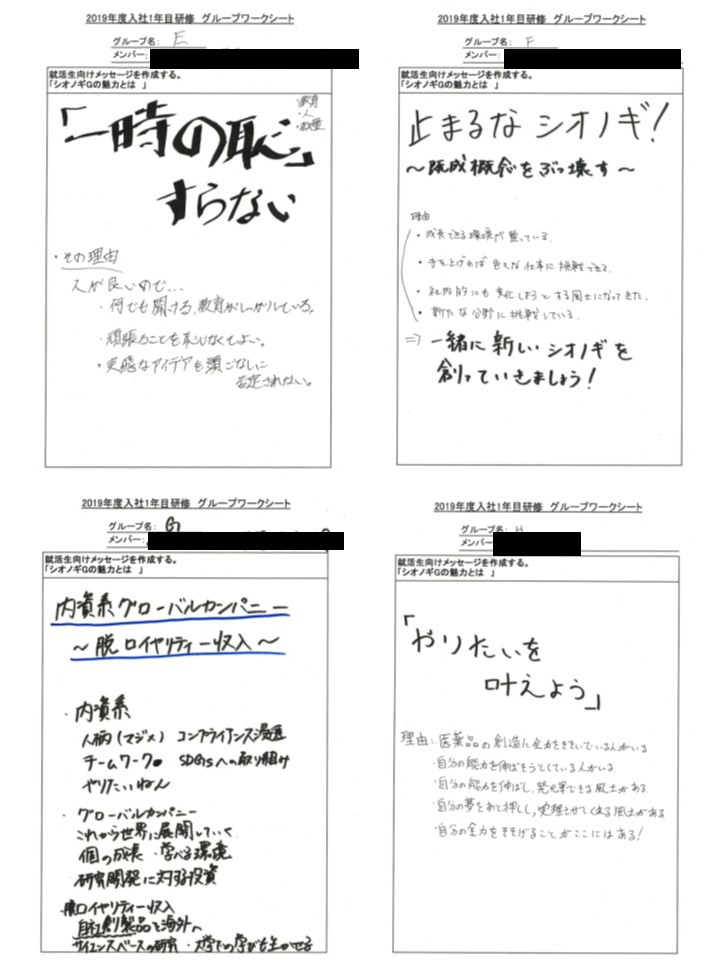 2019年度入社1年目研修 グループワークシート
グループ名: E
メンバー:
就活生向けメッセージを作成する。
「シオノギGの魅力とは 」
・教育
・人
・
「一時の恥」
すらない
・その理由
人が良いので…
・何でも聞ける、教育がしっかりしている。
・頑張ることを恥じなくてよい。
・突飛なアイデアも頭ごなしに
否定されない。
2019年度入社1年目研修 グループワークシート
グループ名: F
メンバー:
就活生向けメッセージを作成する。
「シオノギGの魅力とは 」
止まるな シオノギ!
~既成概念をぶっ壊す~
理由
・成長できる環境が整っている。
・手を上げれば 色んな仕事に挑戦できる。
・社内的にも変化しようとする風土になってきた。
・新たな分野に挑戦している。
⇒ 一緒に新しいシオノギを
創っていきましょう!
2019年度入社1年目研修 グループワークシート
グループ名: G
メンバー:
就活生向けメッセージを作成する。
「シオノギGの魅力とは 」
内資系グローバルカンパニー
~脱ロイヤリティー収入~
・内資系
人柄(マジメ) コンプライアンス浸透
チームワーク SDGsへの取り組み
やりたいねん
・グローバルカンパニー
これから世界に展開していく
個の成長・学べる環境
研究開発に対する投資
脱ロイヤリティー収入
自社創製品を海外へ
サイエンスベースの研究・大学での学びも生かせる
2019年度入社1年目研修 グループワークシート
グループ名: H
メンバー
就活生向けメッセージを作成する。
「シオノギGの魅力とは 」
「やりたいを
叶えよう」
理由:・医薬品の創造に全力をそそいでいる人がいる
・自分の能力を伸ばそうとしている人がいる
・自分の能力を伸ばし、発揮できる風土がある
・自分の夢をあと押しし、実現させてくれる風土がある
・自分の全力をそそげることがここにはある!